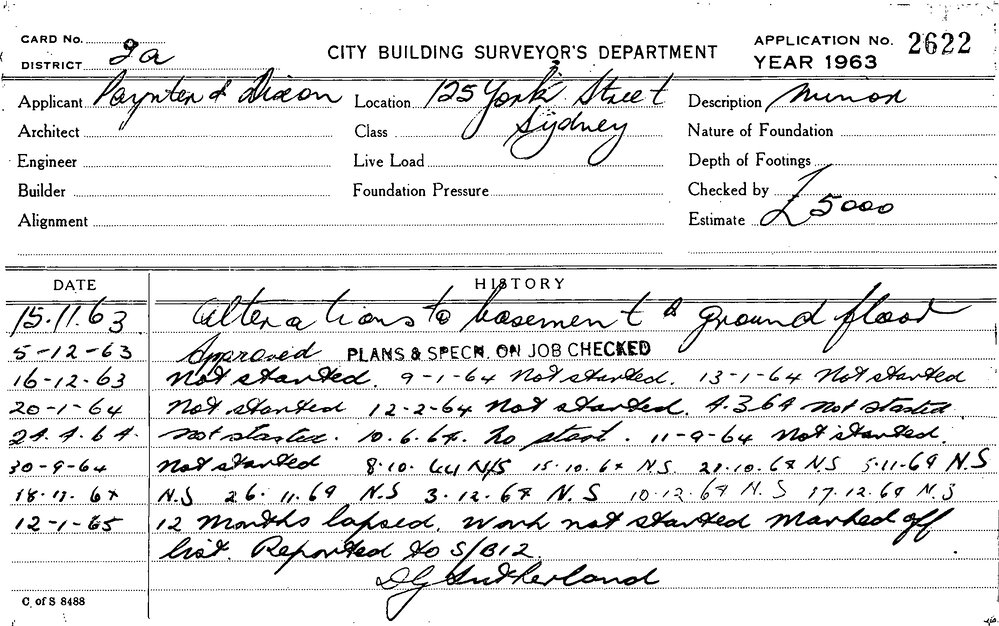 CARD No.
DISTRICT 2a
CITY BUILDING SURVEYOR'S DEPARTMENT
APPLICATION No. 2622
YEAR 1963
Applicant Paynter & Dixon
Location 125 York Street
Sydney
Description Minor
Architect
Class
Nature of Foundation
Engineer
Live Load
Depth of Footings
Builder
Foundation Pressure
Checked by
Alignment
Estimate £5000
DATE HISTORY
15.11.63 Alterations to basement & ground floor
5-12-63 Approved PLANS & SPECN. ON JOB CHECKED
16-12-63 Not started. 9-1-64 Not started. 13-1-64 Not started
20-1-64 Not started 12-2-64 Not started. 4.3.64 not started.
24.4.64. not started. 10.6.64. no start. 11-9-64 Not started.
30-9-64 Not started 8.10.64 N/S 15.10.64 N.S. 21.10.64 N.S 5.11.64 N.S
18.11.64 N.S 26.11.64 N.S 3.12.64 N.S 10.12.64 N.S 17.12.64 N.S
12-1-65 12 Months lapsed. Work not started Marked off
list. Reported to S/B12.
DG Sutherland
C. of S 8488